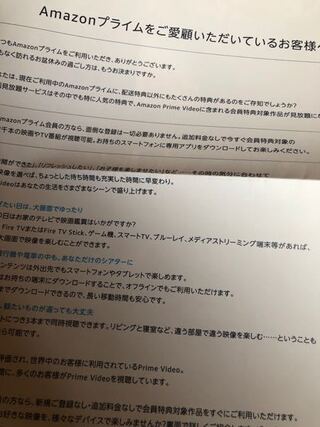 Amazonプライムをご愛顧いただいているお客様へ
つもAmazonプライムをご利用いただき、ありがとうございます。
もなく訪れるお盆休みの過ごし方は、もうお決まりですか。
たは、現在ご利用中のAmazonプライムに、配送特典以外にもたくさんの特典があるのをご存知でしょうか?
見放題サービスはその中でも特に人気の特典で、Amazon Prime Videoに含まれる会員特典対象作品が見放題に
mazonプライム会員の方なら、面倒な登録は一切必要ありません。追加料金なしで今すぐ会員特典対象の
千本の映画やTV番組が視聴可能。お持ちのスマートフォンに専用アプリをダウンロードしてお楽しみください。
間ができた」「リフレッシュしたい」「お子様を楽しませたい」など…、その時の気分に合わせて
像を選べば、ちょっとした待ち時間も充実した時間に早変わり。
Videoはあなたの生活をさまざまなシーンで盛り上げます。
ぎたい日は、大画面でゆったり
の日はお家のテレビで映画鑑賞はいかがですか?
Fire TVまたはFire TV Stick、ゲーム機、スマートTV、ブルーレイ、メディアストリーミング端末等があれば、
大画面で映像を楽しむことができます。
飛行機や電車の中も、あなただけのシアターに
コンテンツは外出先でもスマートフォンやタブレットで楽しめます。
はお持ちの端末にダウンロードすることで、オフラインでもご利用いただけます。
までダウンロードできるので、長い移動時間も安心です。
、観たいものが違っても大丈夫
ントにつき3本まで同時視聴できます。リビングと寝室など、違う部屋で違う映像を楽しむ……ということも
ら可能です。
評価され、世界中のお客様に利用されているPrime Video。
間に、多くのお客様がPrime Videoを視聴しています。
の方なら、新規ご登録なし・追加料金なしで会員特典対象作品をすぐにご利用いただけます。
お好きな映像を、様々なデバイスで楽しみませんか?